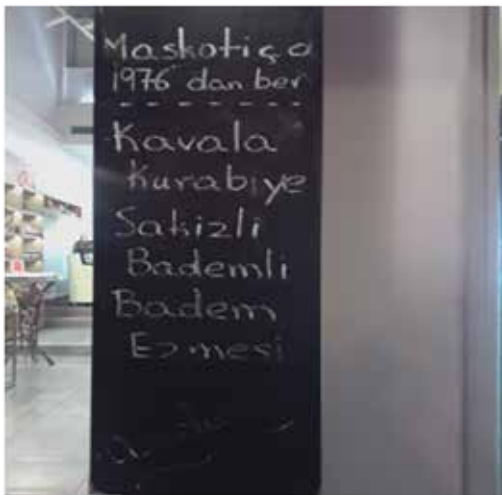 Maskotiça
1976 dan ber
Kavala
Kurabiye
Sakizli
Bademli
Badem
Ezmesi